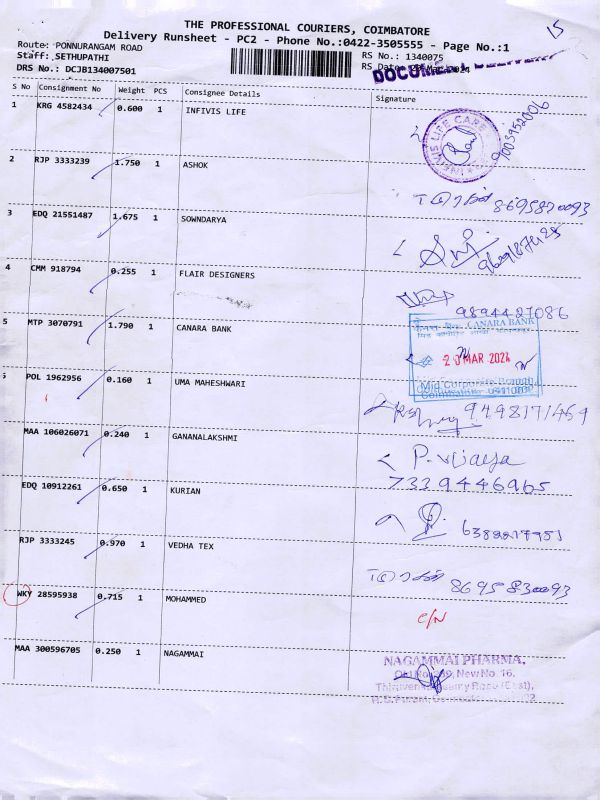 THE PROFESSIONAL COURIERS, COIMBATORE
Delivery Runsheet - PC2 - Phone No.:0422-3505555 - Page No.:1
15
Route: PONNURANGAM ROAD
RS No.: 1340075
Staff: SETHUPATHI
RS Date
DRS No.: DCJB134007501
S No Consignment No Weight PCS Consignee Details Signature
1 KRG 4582434 0.600 1 INFIVIS LIFE
LIFE CARE
9003952006
2 RJP 3333239 1.750 1 ASHOK
8695830093
3 EDQ 21551487 1.675 1 SOWNDARYA
4 CMM 918794 0.255 1 FLAIR DESIGNERS
9894427086
5 MTP 3070791 1.790 1 CANARA BANK
CANARA BANK
20 MAR 2024
Mid Corporate Branch
POL 1962956 0.160 1 UMA MAHESHWARI
9498171464
MAA 106026071 0.240 1 GANANALAKSHMI
P. Vijaya
7339446965
EDQ 10912261 0.650 1 KURIAN
RJP 3333245 0.970 1 VEDHA TEX
8695830093
WKY 28595938 0.715 1 MOHAMMED
C/N
MAA 300596705 0.250 1 NAGAMMAI
NAGAMMAI PHARMA,
New No. 16,